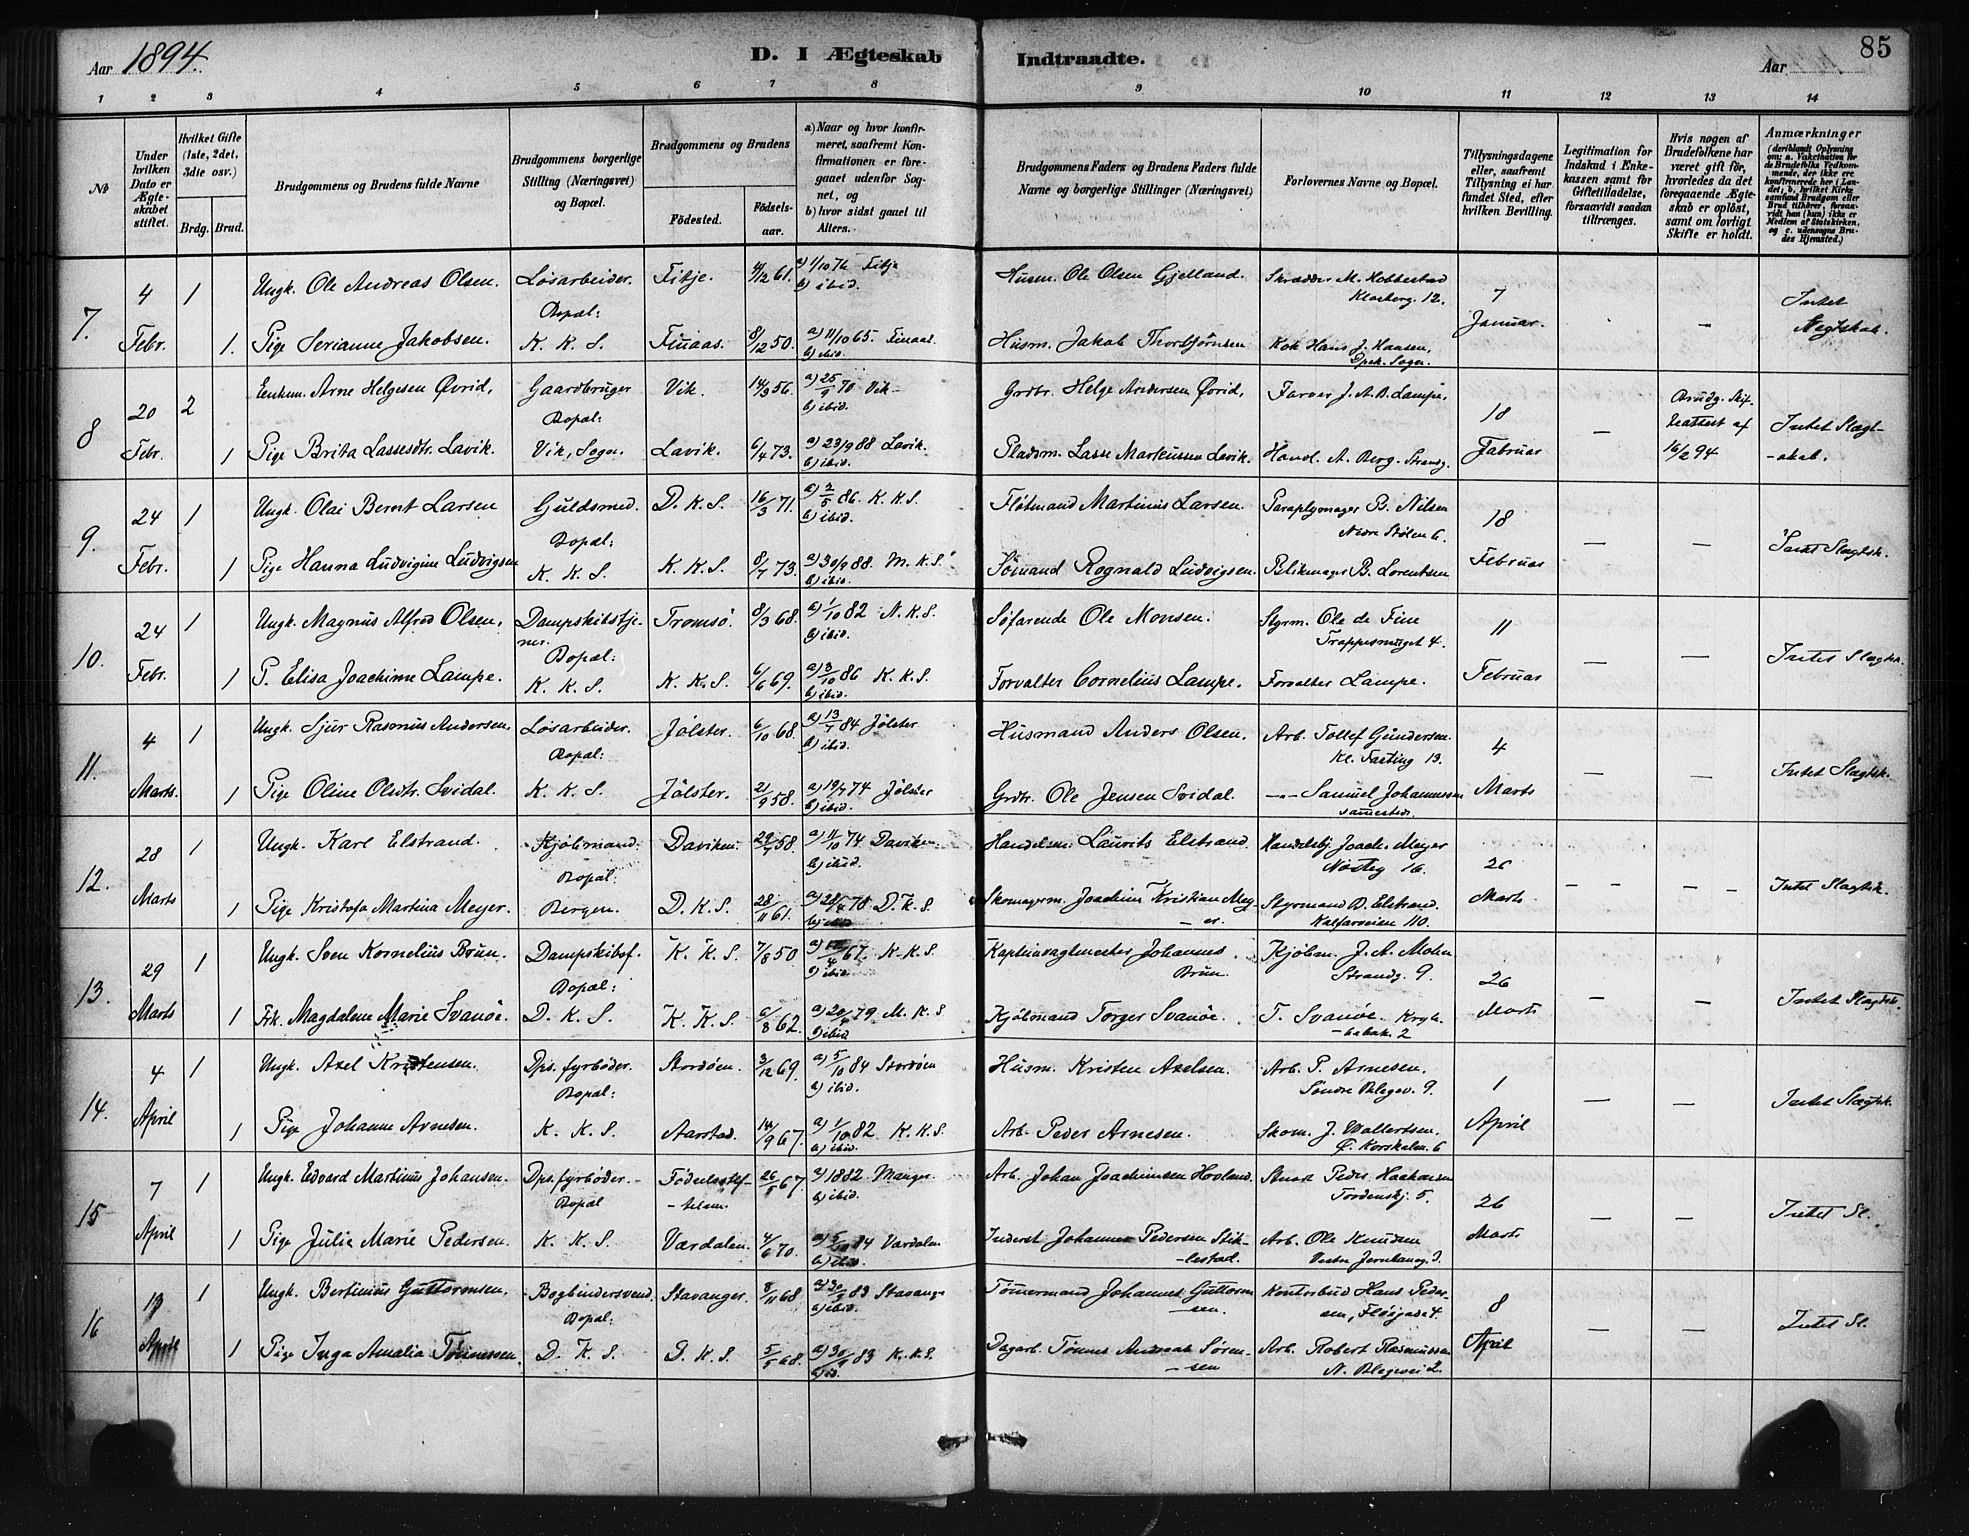 Aar 1894.
D. I Ægteskab Indtraadte.
Aar
85
1 2 3 4 5 6 7 8 9 10 11 12 13 14
No
Under hvilken Dato er Ægteskabet stiftet.
Hvilket Gifte (1ste, 2det, 3die osv.)
Brdg. Brud.
Brudgommens og Brudens fulde Navne
Brudgommens borgerlige Stilling (Næringsvei) og Bopæl.
Brudgommens og Brudens
Fødested.
Fødselsaar.
a) Naar og hvor konfirmeret, saafremt Konfirmationen er foregaaet udenfor Sognet, og
b) hvor sidst gaaet til Alters.
Brudgommens Faders og Brudens Faders fulde Navne og borgerlige Stillinger (Næringsvei)
Forlovernes Navne og Bopæl.
Tillysningsdagene eller, saafremt Tillysning ei har fundet Sted, efter hvilken Bevilling.
Legitimation for Indskud i Enkekassen samt for Giftetilladelse, forsaavidt saadan tiltrænges.
Hvis nogen af Brudefolkene har været gift før, hvorledes da det foregaaende Ægteskab er opløst, samt om lovligt Skifte er holdt.
Anmærkninger
7. 4 Febr. 1 Ungk. Ole Andreas Olsen. Løsarbeider. Bopæl: K. K. S. Fitje 4/12 61. a) 1/10 76 Fitje b) ibid. Husm. Ole Olsen Gjelland. Skrædder M. Hobbestad Klosterg. 12. 7 Januar. — Intet Slægtskab.
1. Pige Serianne Jakobsen. Finaas. 8/12 50. a) 11/10 65. Finaas. b) ibid. Husm. Jakob Thorbjörnsen Kok Hans J. Hansen,
8 20 Febr. 2 Enkem. Arne Helgesen Øvrid, Gaardbruger Bopæl: Vik, Sogn. Vik. 14/3 56. a) 25/9 70 Vik b) ibid. Grdbr. Helge Andersen Øvrid, Farver J. A. B. Lampe, 18 Februar — Brudg. Skifteattest af 16/2 94 Intet Slægtskab.
1 Pige Brita Lassesdtr. Lavik. Lavik. 6/4 73. a) 23/9 88 Lavik. b) ibid. Pladsm. Lasse Markussen Lavik. Handl. A. Berg. Strandg.
9. 24 Febr. 1 Ungk. Olai Bernt Larsen Guldsmed. Bopæl: K. K. S. D. K. S. 16/3 71. a) 2/5 86. K. K. S. b) ibid. Fløtmand Martinius Larsen. Paraplymager B. Nilsen Nedre Stølen 6. 18 Februar — — Intet Slægtsk.
1 Pige Hanna Ludvigine Ludvigsen K. K. S. 8/7 73. a) 30/9 88 M. K. S. b) ibid. Sømand Rognald Ludvigsen. Blikmager B. Lorentsen
10. 24 Febr. 1 Ungk. Magnus Alfred Olsen, Dampskibstjener. Bopæl: K. K. S. Tromsö. 8/3 68. a) 1/10 82 N. K. S. b) ibid. Søfarende Ole Monsen. Styrm. Ole de Fine Trappesmuget 4. 11 Februar — — Intet Slægtsk.
1 P. Elisa Joachime Lampe. K. K. S. 6/6 69. a) 3/10 86 K. K. S. b) ibid. Forvalter Cornelius Lampe. Forvalter Lampe.
11. 4 Marts. 1 Ungk. Sjur Rasmus Andersen, Løsarbeider. Bopæl: K. K. S. Jølster. 6/10 68. a) 13/7 84 Jølster b) ibid. Husmand Anders Olsen, Arb. Tollef Gundersen. Kl. Fasting 13. 4 Marts — — Intet Slægtsk.
1 Pige Oline Olsdtr. Svidal. Jølster. 21/9 58. a) 19/7 74 Jølster b) ibid. Grdbr. Ole Jensen Svidal. —"— Samuel Johannessen sammested.
12. 28 Marts 1 Ungk. Karl Elstrand. Kjøbmand. Bopæl: Bergen. Daviken. 29/7 58. a) 11/10 74 Daviken. b) ibid. Handelsm. Laurits Elstrand. Handelsbj. Joach. Meyer Nøsteg 16. 26 Marts — — — — Intet Slægtsk.
1 Pige Kristofa Martina Meyer. D. K. S. 28/11 61. a) 28/4 78 D. K. S. Skomagerm. Joachim Kristian Meyer. Styrmand D. Elstrand. Kalfarveien 110.
13. 29 Marts 1 Ungk. Sven Kornelius Brun. Dampskibsf. Bopæl: D. K. S. K. K. S. 7/8 50 67. K. K. S. b) ibid Johannes Brun Kjöbm. J. A. Mohn Strandg. 9. 26 Marts — — Intet Slægtsk.
1 Frk. Magdalene Marie Svanöe. K. K. S. 6/8 62. a) 20/4 79 M. K. S b) ibid Kjöbmand Torger Svanöe. T. Svanöe.
14. 4 April 1 Ungk. Axel Kristensen. Dps. fyrbøder. Bopæl: K. K. S. Stordøen. 3/12 69. a) 5/10 84 Stordøen b) ibid. Husm. Kristen Axelsen. Arb. P. Arnesen. Søndre Blegev. 9. 1 April — — Intet Slægtsk.
1 Pige Johanne Arnesen. Aarstad. 14/9 67. a) 1/10 82 K. K. S. b) ibid. Arb. Peder Arnesen. Skom. J. Wallertsen. Ø. Korskalm. 6
15 7 April 1 Ungk. Edvard Martinus Johansen. Dps. fyrbøder. Bopæl K. K. S. Födselsstiftelsen. 26/5 67. a) 1882 Manger. b) ibid. Arb. Johan Joachimsen Hovland. Peder Haakonsen Tordenskj. 5. 26 Marts — — Intet Sl.
1 Pige Julie Marie Pedersen. Værdalen. 4/6 70. 84 Værdalen b) ibid. Inderst Johannes Pedersen Stiklestad. Arb. Ole Knudsen
16 13 April 1 Ungk. Bertinius Guttormsen. Bogbindersvend. Bopæl: D. K. S. Stavanger. 8/11 68. a) 30/9 83 Stavanger b) ibid. Tømmermand Johannes Guttormsen. Kontorbud Hans Pedersen, Fløigade 4. 8 April — — Intet Sl.
1 Pige Inga Amalia Tønnessen. D. K. S. 5/5 68. a) 30/9 83 K. K. S. b) ibid. Dagarb. Tønnes Andreas Sørensen Arb. Robert Rasmussen N. Blegevei 2.